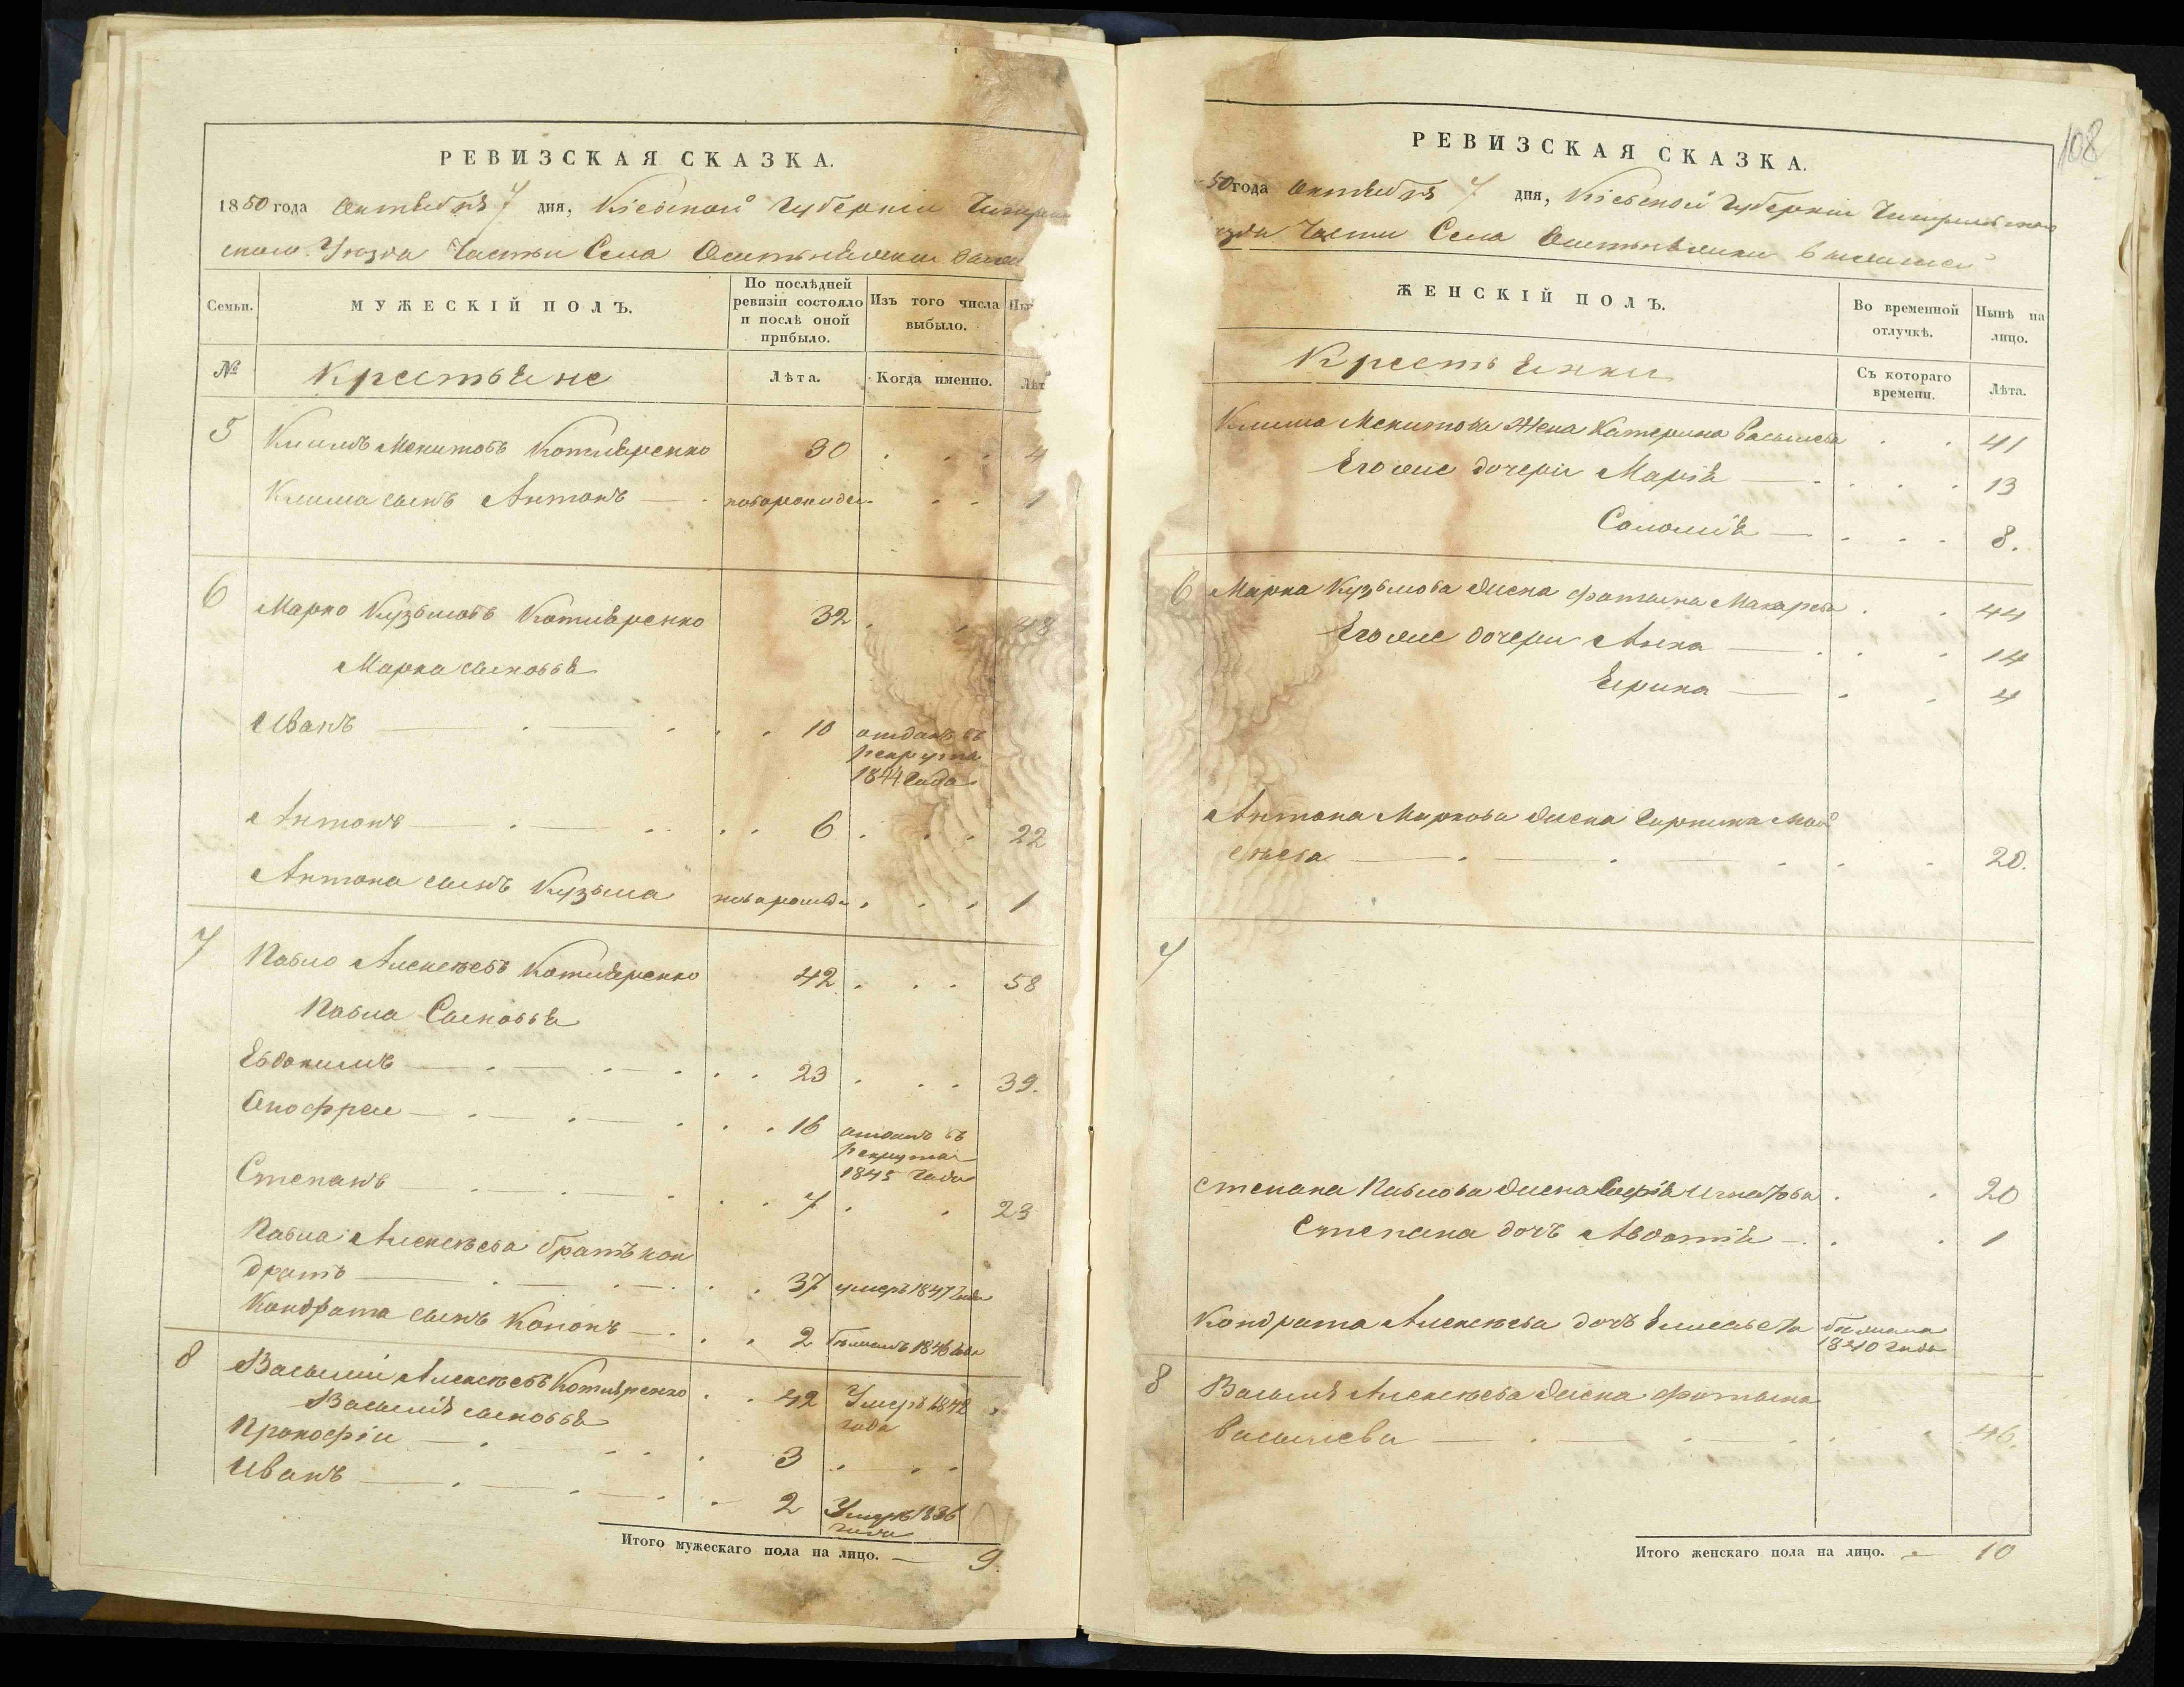 РЕВИЗСКАЯ СКАЗКА.
1850 года Октября 7 дня, Кіевской Губерніи Чигирин
ского Уезда Части Села
Семьи.
МУЖЕСКІЙ ПОЛЪ.
По послѣдней ревизіи состояло и послѣ оной прибыло.
Изъ того числа выбыло.
№
Крестьяне
Лѣта.
Когда именно.
Лѣт
5
Климъ Мекитовъ Котляренко 30 4
Клима сынъ Антонъ новорожден 1
6
Марко Кузьмовъ Котляренко 32 48
Марка сыновья
Иванъ 10 отданъ въ
рекрута
1844 года
Антонъ 6 22
Антона сынъ Кузьма новорожд 1
7
Павло Алексѣевъ Котляренко 42 58
Павла Сыновья
Евдокимъ 23 39.
Онофрей 16 отданъ въ
рекрута
1845 года
Степанъ 7 23
Павла Алексѣева братъ Кон
дратъ 37 умеръ 1847 года
Кондрата сынъ Кононъ 2 1846 года
8
Василій Алексѣевъ Котляренко 42 Умеръ 1842
года
Василія сыновья
Прокофій 3
Иванъ 2 Умеръ 1836
года
Итого мужескаго пола на лицо. 9.
108
РЕВИЗСКАЯ СКАЗКА.
50 года Октября 7 дня, Кіевской Губерніи Чигиринского
езда Части Села
ЖЕНСКІЙ ПОЛЪ.
Во временной отлучкѣ.
Нынѣ на лицо.
Крестьянки
Съ котораго времени.
Лѣта.
Клима Мекитова Жена Катерина Васильева 41
Его же дочери Марія 13
Соломія 8.
6 Марка Кузьмова жена Фотына Макарева 44
Его же дочери Анна 14
Ерина 4
Антона Маркова жена Горпина Мой
сѣева 20.
7
Степана Павлова жена Софія Игнатова 20
Степана дочъ Авдотія 1
Кондрата Алексѣева дочъ Елисавета бѣжала
1840 года
8 Василія Алексѣева жена Фотына
Васильева 46.
Итого женскаго пола на лицо. 10